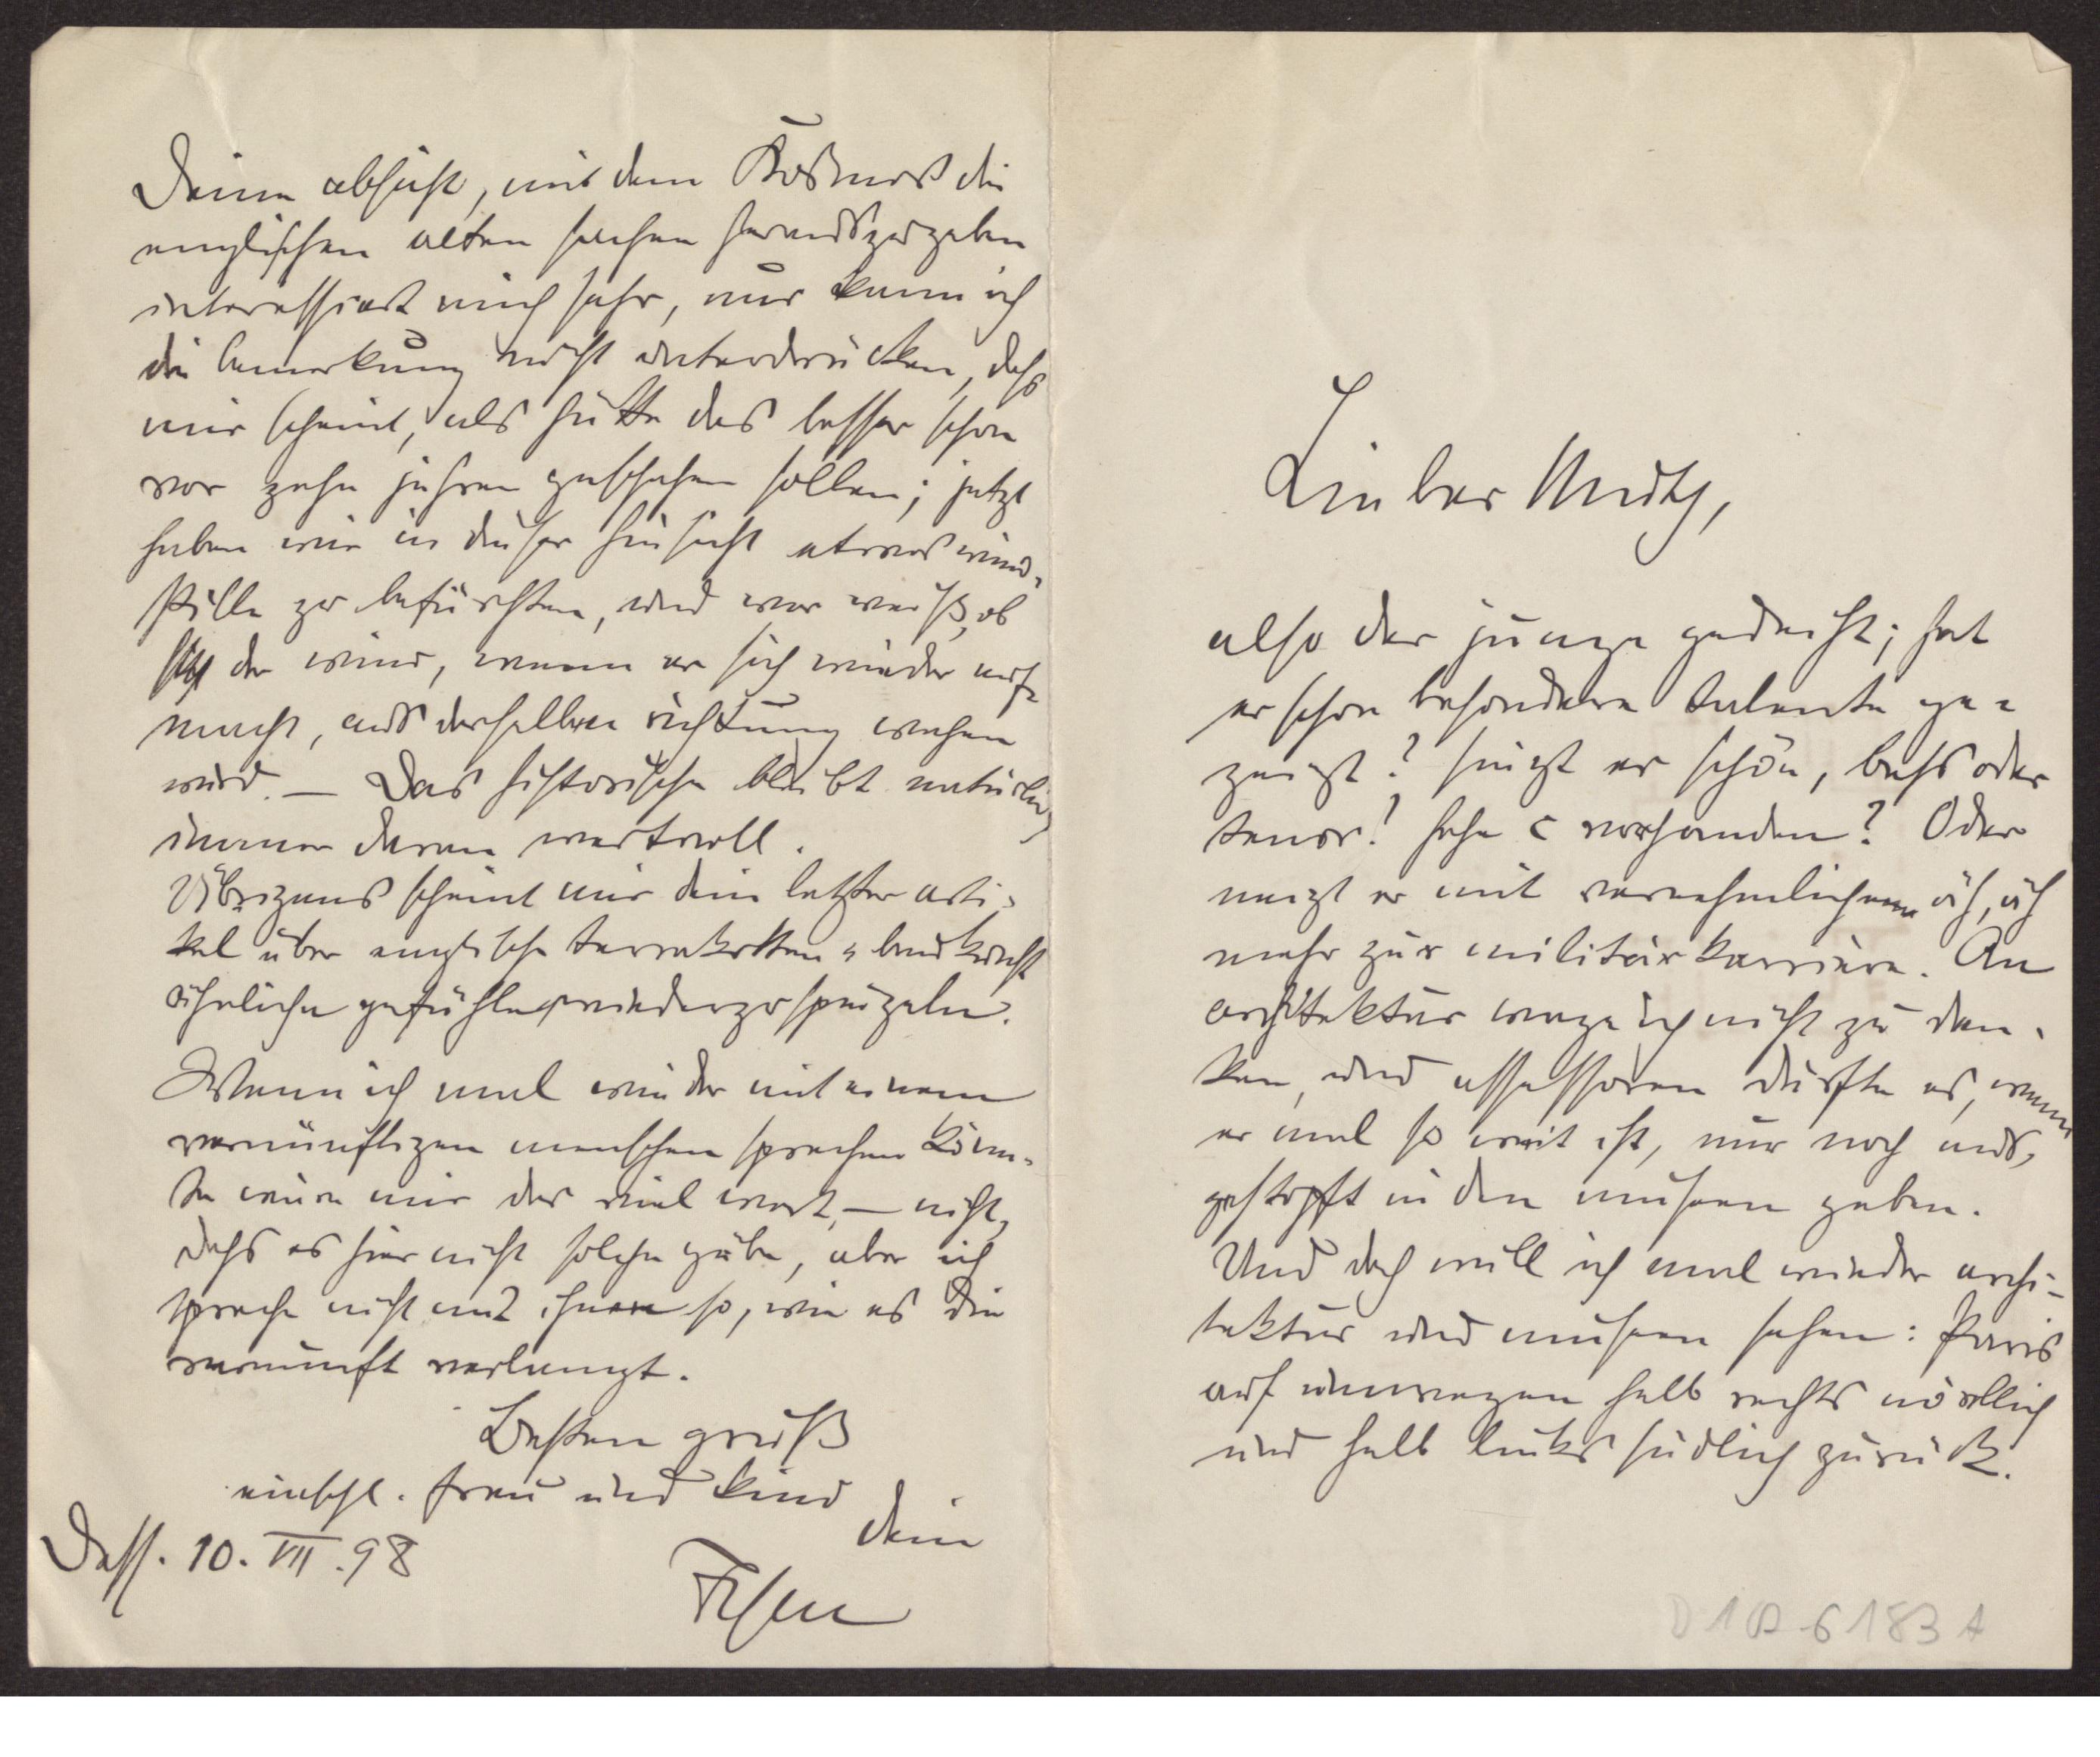 Lieber Muths,
also der junge gedeiht; hat
er schon besondere talente ge-
zeigt? singt er schön, bass oder
tenor? hohe c vorhanden? Oder
neigt er mit vernehmlichem äh, äh
mehr zur militärkarriere. An
architektur wage ich nicht zu den-
ken, und assessoren dürfte es, wenn
er mal so weit ist, nur noch aus-
gestopft in den museen geben.
Und doch will ich mal wieder archi-
tektur und museen sehen: Paris
auf umwegen halb rechts nördlich
und halb links südlich zurück.
Deine absicht, mit dem Kosmos die
englischen alten sachen herauszugeben
interessiert mich sehr, nur kann ich
die bemerkung nicht unterdrücken, dass
mir scheint, als hätte das besser schon
vor zehn jahren geschehen sollen; jetzt
haben wir in dieser hinsicht etwas wind-
stille zu befürchten, und wer weiß, ob
der wind, wenn er sich wieder auf-
macht, aus derselben richtung wehen
wird. — Das historische bleibt natürlich
immer daran wertvoll.
Übrigens scheint mir dein letzter arti-
kel über englische terrakotten
ähnliche gefühle wiederzuspiegeln.
Wenn ich mal wieder mit einem
vernünftigen menschen sprechen könn-
te wäre mir das viel wert, — nicht,
dass es hier nicht solche gäbe, aber ich
spreche nicht mit ihnen so, wie es die
vernunft verlangt.
Besten gruß
einschl. frau und kind
dein
Dess. 10. VII. 98
D 1 Q-6183 A